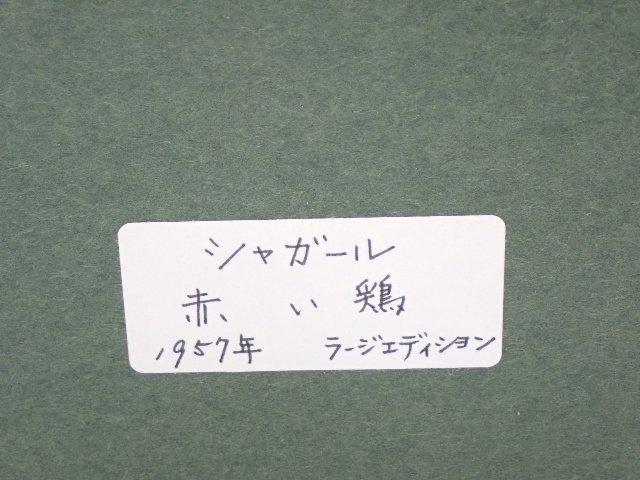 シャガール
赤い鶏
1957年 ラージエディション